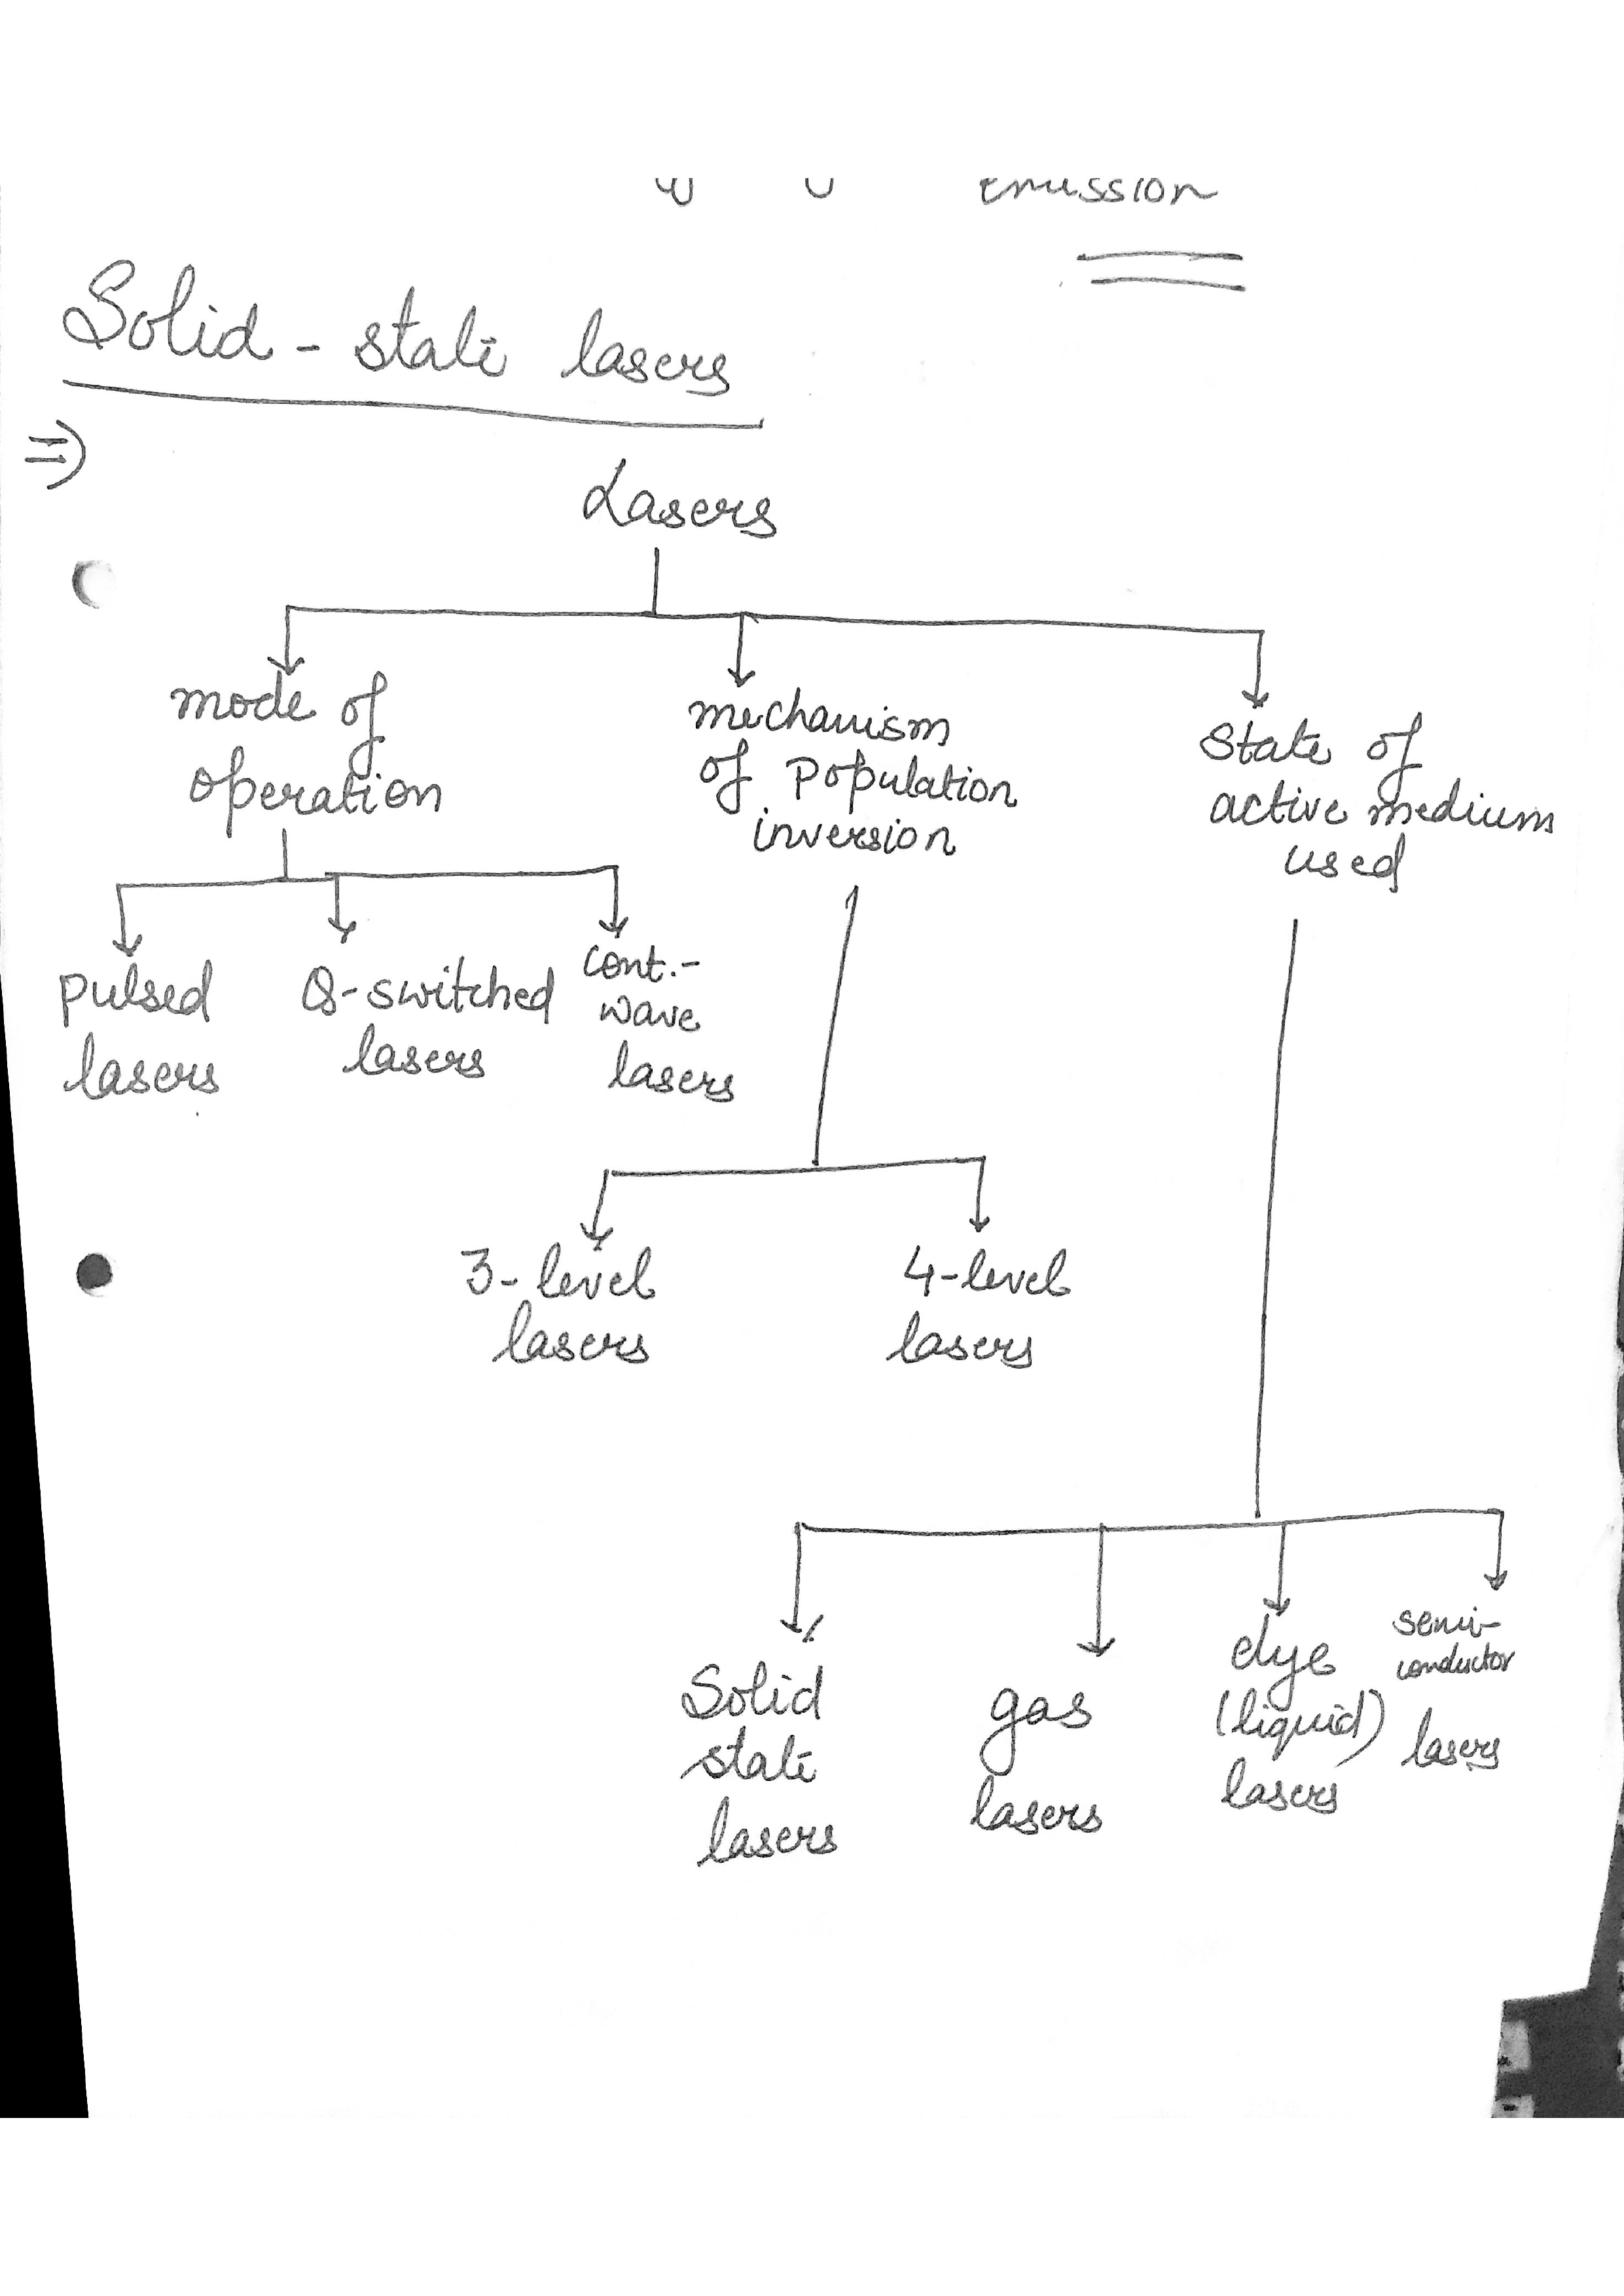 emission
Solid-state lasers
⇒
Lasers
mode of
operation
mechanism
of Population
inversion
State of
active medium
used
pulsed
lasers
Q-switched
lasers
cont.-
wave
lasers
3-level
lasers
4-level
lasers
Solid
state
lasers
gas
lasers
dye
(liquid)
lasers
semi-
conductor
lasers